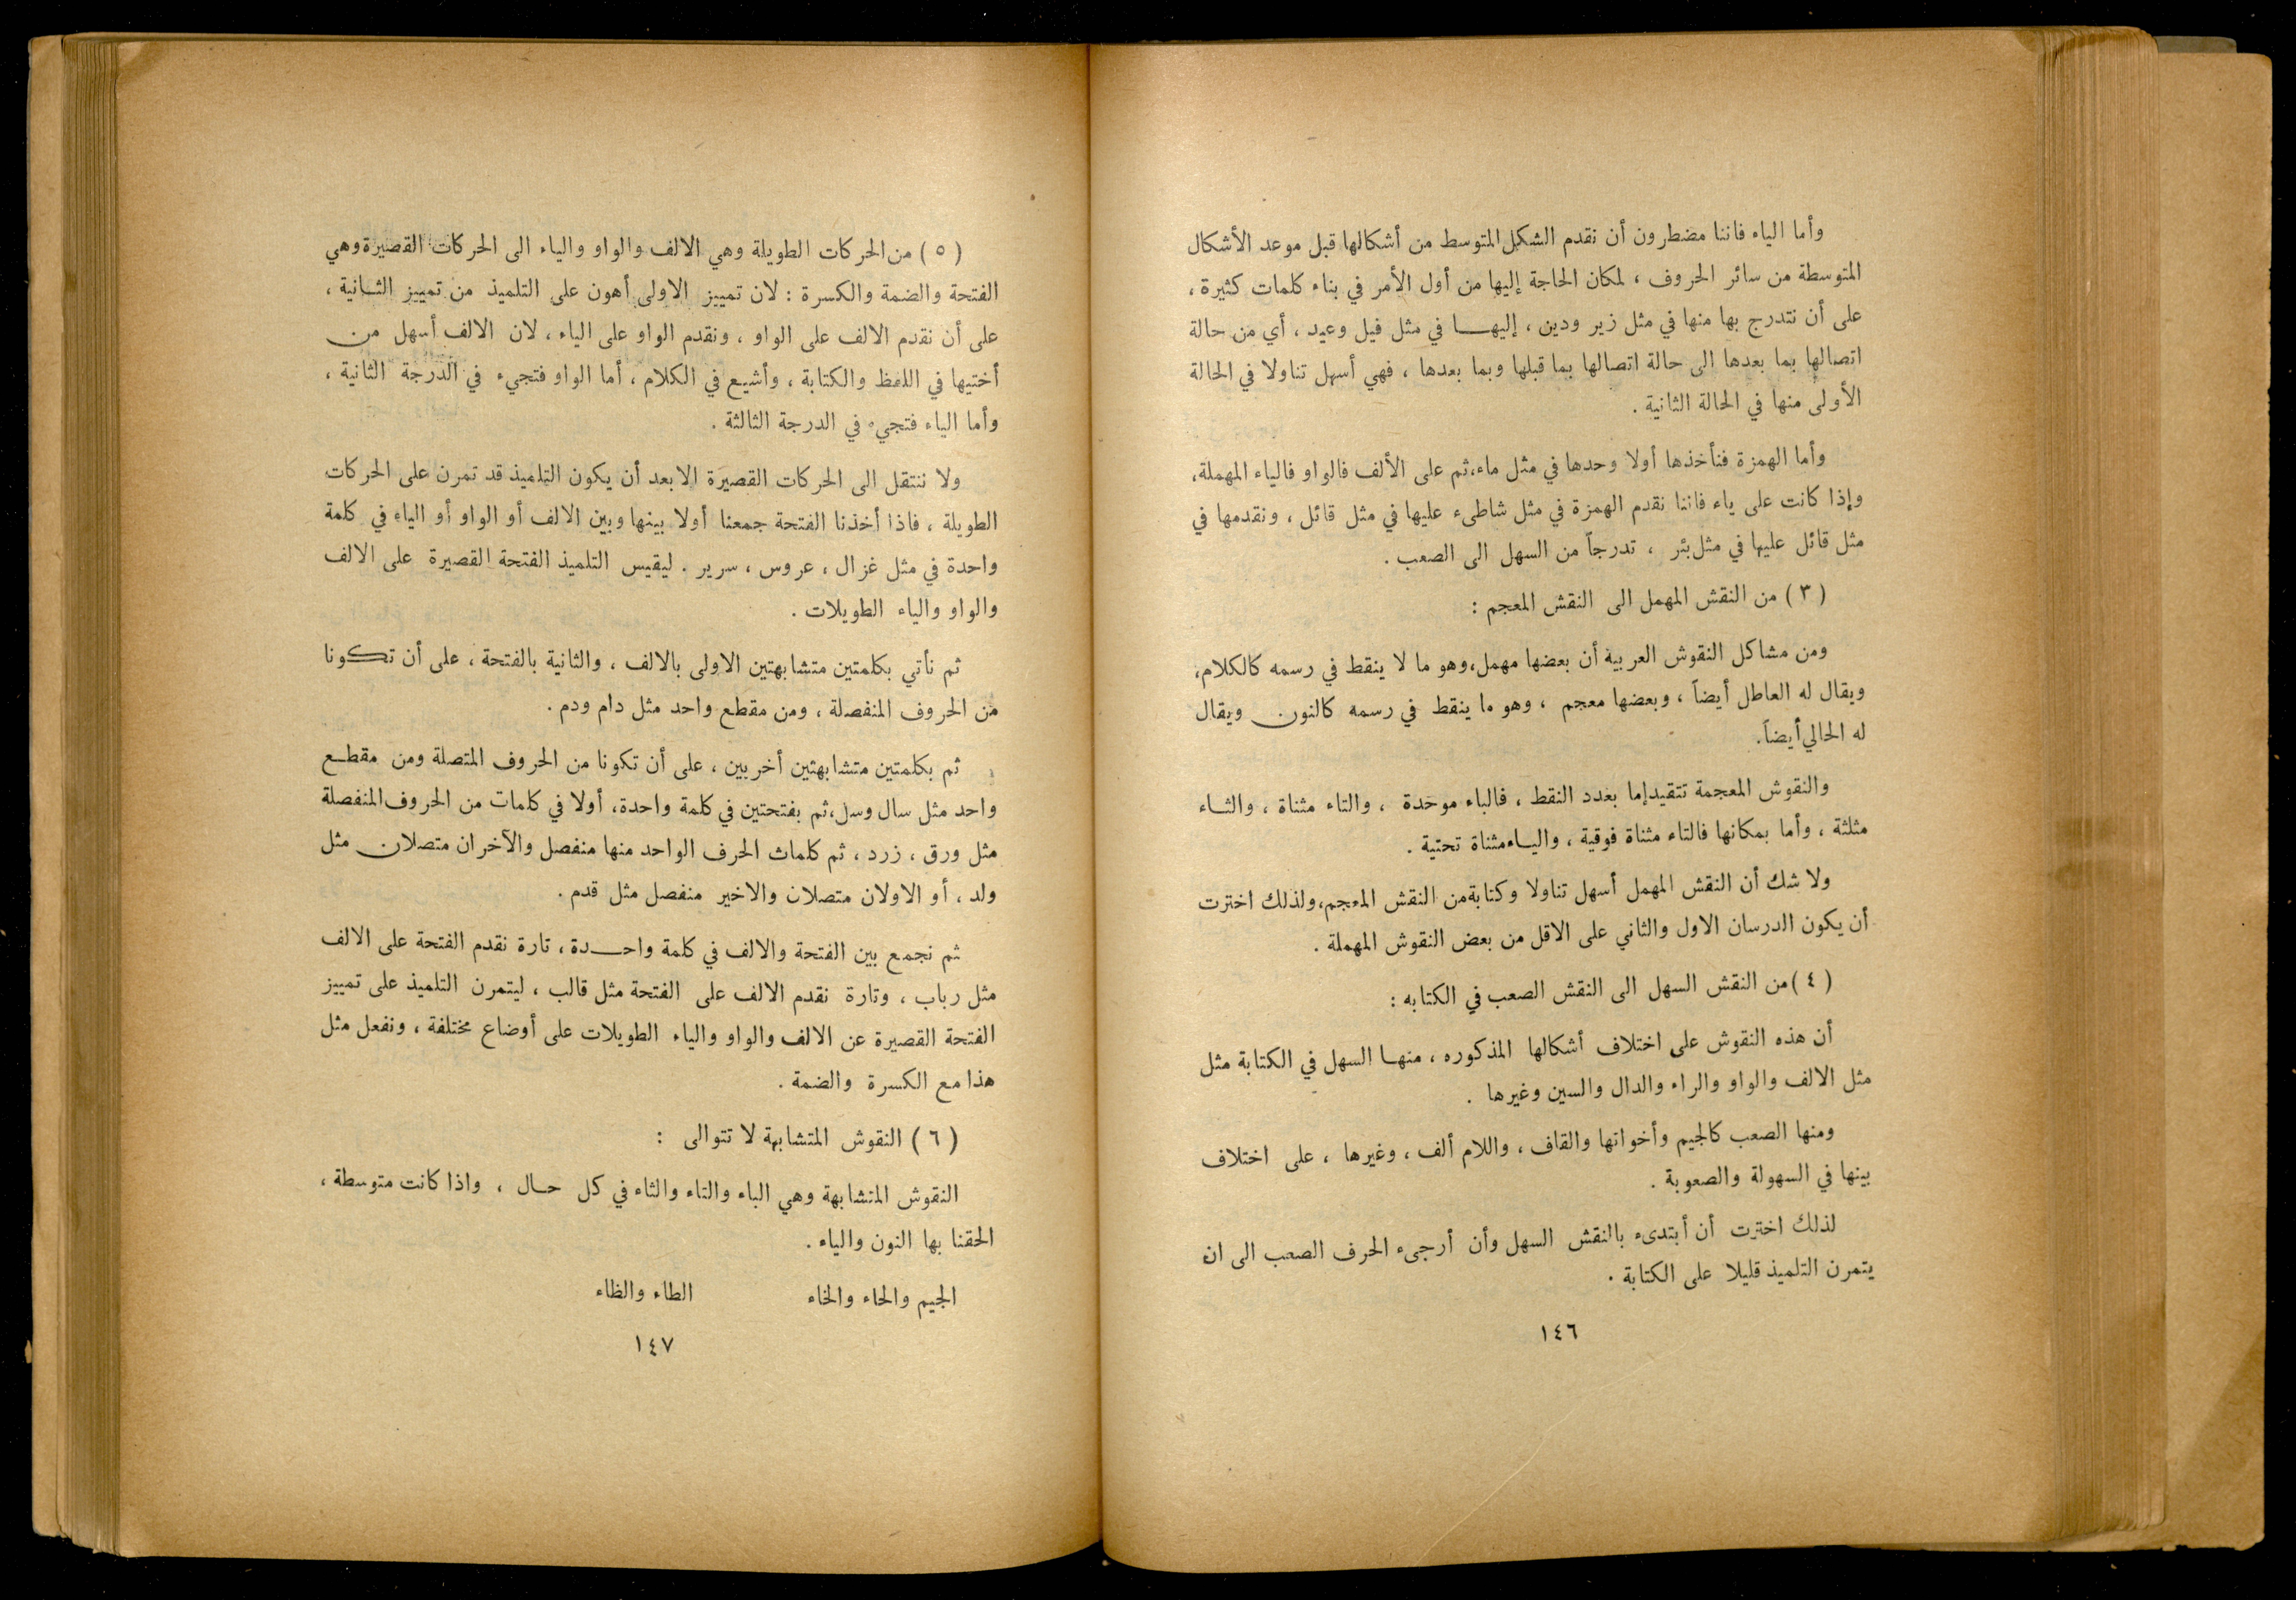 وأما الياء فاننا مضطرون أن نقدم الشكل المتوسط من أشكالها قبل موعد الأشكال
المتوسطة من سائر الحروف ، لمكان الحاجة إليها من أول الأمر في بناء كلمات كثيرة ،
على أن نتدرج بها منها في مثل زير ودين ، إليهـا في مثل فيل وعيد ، أي من حالة
اتصالها بما بعدها الى حالة اتصالها بما قبلها وبما بعدها ، فهي أسهل تناولا في الحالة
الأولى منها في الحالة الثانية .
وأما الهمزة فنأخذها أولا وحدها في مثل ماء،ثم على الألف فالواو فالياء المهملة،
وإذا كانت على ياء فاننا نقدم الهمزة في مثل شاطىء عليها في مثل قائل ، ونقدمها في
مثل قائل عليها في مثل بئر ، تدرجاً من السهل الى الصعب .
( ٣ ) من النقش المهمل الى النقش المعجم :
ومن مشاكل النقوش العربية أن بعضها مهمل،وهو ما لا ينقط في رسمه كالكلام،
ويقال له العاطل أيضاً ، وبعضها معجم ، وهو ما ينقط في رسمه كالنون ويقال
له الحالي أيضاً.
والنقوش المعجمة تتقيد إما بعدد النقط ، فالباء موحدة ، والتاء مثناة ، والثـاء
مثلثة ، وأما بمكانها فالتاء مثناة فوقية ، واليـاء مثناة تحتية .
ولا شك أن النقش المهمل أسهل تناولا وكتابة من النقش المعجم،ولذلك اخترت
أن يكون الدرسان الاول والثاني على الاقل من بعض النقوش المهملة .
( ٤ ) من النقش السهل الى النقش الصعب في الكتابه :
أن هذه النقوش على اختلاف أشكالها المذكوره ، منهـا السهل في الكتابة مثل
مثل الالف والواو والراء والدال والسين وغيرها .
ومنها الصعب كالجيم وأخواتها والقاف ، واللام ألف ، وغيرها ، على اختلاف
بينها في السهولة والصعوبة .
لذلك اخترت أن أبتدىء بالنقش السهل وأن أرجىء الحرف الصعب الى ان
يتمرن التلميذ قليلا على الكتابة .
١٤٦
( ٥ ) من الحركات الطويلة وهي الالف والواو والياء الى الحركات القصيرة وهي
الفتحة والضمة والكسرة : لان تمييز الاولى أهون على التلميذ من تمييز الثـانية ،
على أن نقدم الالف على الواو ، ونقدم الواو على الياء ، لان الالف أسهل من
أختيها في اللفظ والكتابة ، وأشيع في الكلام ، أما الواو فتجيء في الدرجة الثانية ،
وأما الياء فتجيء في الدرجة الثالثة .
ولا ننتقل الى الحركات القصيرة الا بعد أن يكون التلميذ قد تمرن على الحركات
الطويلة ، فاذا أخذنا الفتحة جمعنا أولا بينها وبين الالف أو الواو أو الياء في كلمة
واحدة في مثل غزال ، عروس ، سرير . ليقيس التلميذ الفتحة القصيرة على الالف
والواو والياء الطويلات .
ثم نأتي بكلمتين متشابهتين الاولى بالالف ، والثانية بالفتحة ، على أن تكونا
من الحروف المنفصلة ، ومن مقطع واحد مثل دام ودم .
ثم بكلمتين متشابهتين أخريين ، على أن تكونا من الحروف المتصلة ومن مقطـع
واحد مثل سال وسل،ثم بفتحتين في كلمة واحدة، أولا في كلمات من الحروف المنفصلة
مثل ورق ، زرد ، ثم كلمات الحرف الواحد منها منفصل والآخران متصلان مثل
ولد ، أو الاولان متصلان والاخير منفصل مثل قدم .
ثم نجمع بين الفتحة والالف في كلمة واحـدة ، تارة نقدم الفتحة على الالف
مثل رباب ، وتارة نقدم الالف على الفتحة مثل قالب ، ليتمرن التلميذ على تمييز
الفتحة القصيرة عن الالف والواو والياء الطويلات على أوضاع مختلفة ، ونفعل مثل
هذا مع الكسرة والضمة .
( ٦ ) النقوش المتشابهة لا تتوالى :
النقوش المتشابهة وهي الباء والتاء والثاء في كل حـال ، واذا كانت متوسطة ،
الحقنا بها النون والياء .
الجيم والحاء والخاء الطاء والظاء
١٤٧